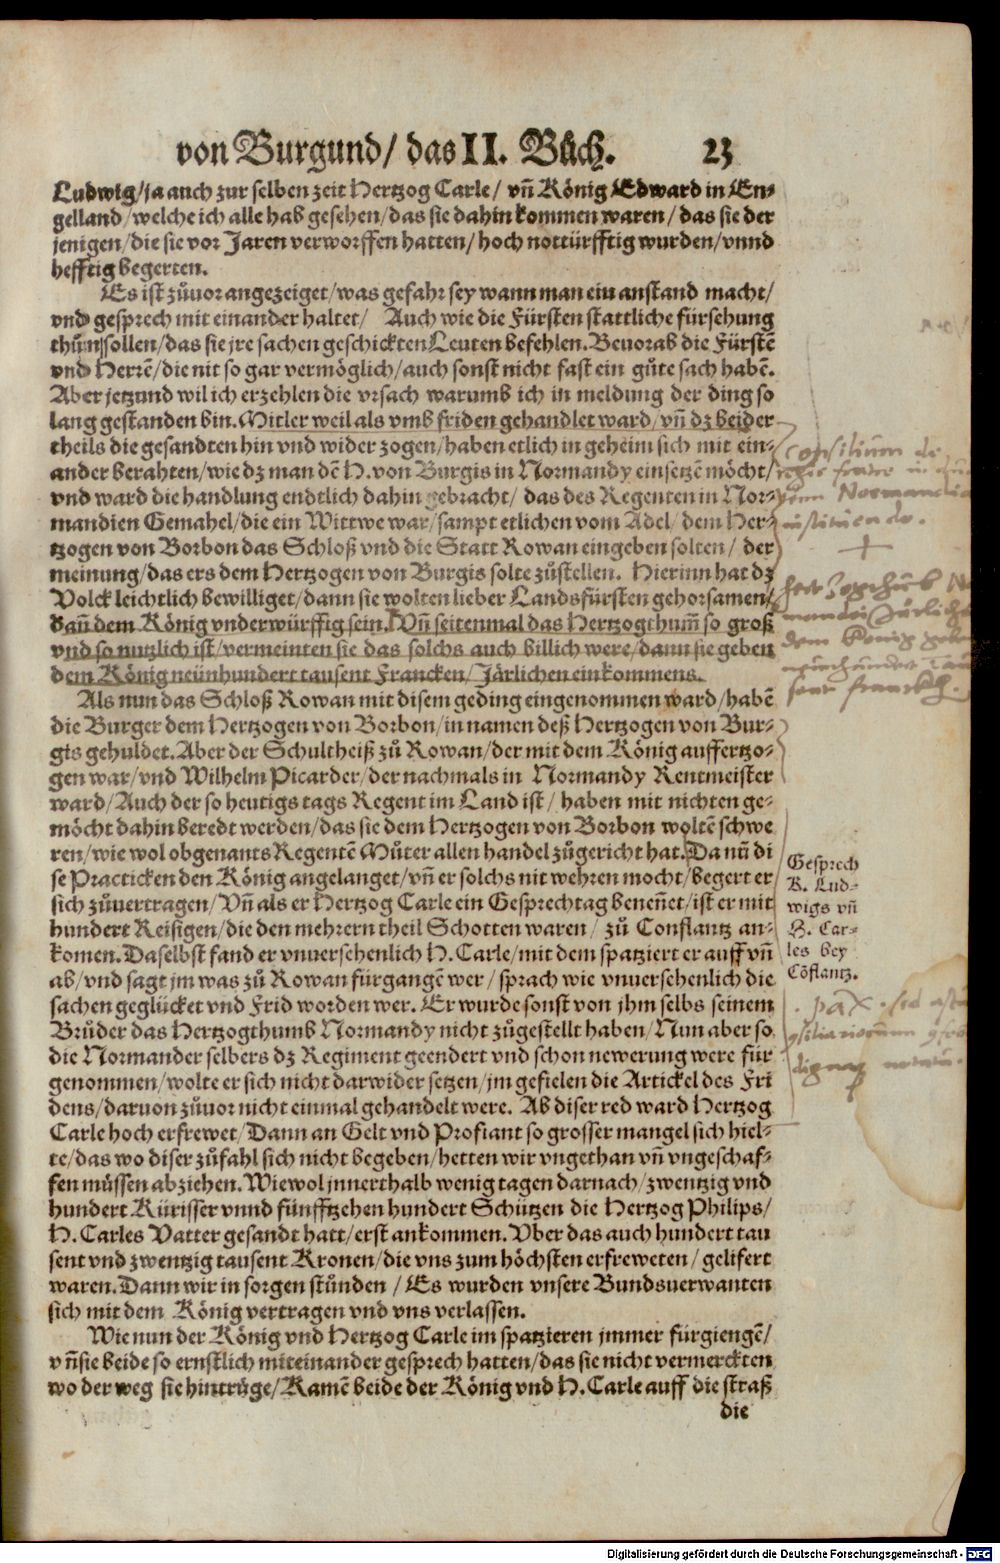 von Burgund/ das II. Bůch. 23
Ludwig/ ja auch zur selben zeit Hertzog Carle/ vñ König Edward in En-
gelland/ welche ich alle hab gesehen/ das sie dahin kommen waren/ das sie der
jenigen/ die sie vor Jaren verworffen hatten/ hoch nottürfftig wurden/ vnnd
hefftig begerten.
Es ist zůuor angezeiget/ was gefahr sey wann man ein anstand macht/
vnd gesprech mit einander haltet/ Auch wie die Fürsten stattliche fürsehung
thůn sollen/ das sie jre sachen geschickten Leuten befehlen. Beuorab die Fürstē
vnd Herrē/ die nit so gar vermöglich/ auch sonst nicht fast ein gůte sach habē.
Aber jetzund wil ich erzehlen die vrsach warumb ich in meldung der ding so
lang gestanden bin. Mitler weil als vmb friden gehandlet ward/ vñ dz beider
theils die gesandten hin vnd wider zogen/ haben etlich in geheim sich mit ein-
ander berahten/ wie dz man dē H. von Burgis in Normandy einsetzē möcht/
vnd ward die handlung endtlich dahin gebracht/ das des Regenten in Nor-
mandien Gemahel/ die ein Wittwe war/ sampt etlichen vom Adel/ dem Her-
tzogen von Borbon das Schloß vnd die Statt Rowan eingeben solten/ der
meinung/ das ers dem Hertzogen von Burgis solte zůstellen. Hierinn hat dz
Volck leichtlich bewilliget/ dann sie wolten lieber Landsfürsten gehorsamen/
dañ dem König vnderwürffig sein. Vñ seitenmal das Hertzogthum̃ so groß
vnd so nutzlich ist/ vermeinten sie das solchs auch billich were/ dann sie geben
dem König neünhundert tausent Francken/ Järlichen einkommens.
Als nun das Schloß Rowan mit disem geding eingenommen ward/ habē
die Burger dem Hertzogen von Borbon/ in namen deß Hertzogen von Bur-
gis gehuldet. Aber der Schultheiß zů Rowan/ der mit dem König auffertzo-
gen war/ vnd Wilhelm Picarder/ der nachmals in Normandy Rentmeister
ward/ Auch der so heutigs tags Regent im Land ist/ haben mit nichten ge-
möcht dahin beredt werden/ das sie dem Hertzogen von Borbon woltē schwe
ren/ wie wol obgenants Regentē Můter allen handel zůgericht hat. Da nũ di
se Practicken den König angelanget/ vñ er solchs nit wehren mocht/ begert er
sich zůuertragen/ Vñ als er Hertzog Carle ein Gesprechtag beneñet/ ist er mit
hundert Reisigen/ die den mehrern theil Schotten waren/ zů Conflantz an-
komen. Daselbst fand er vnuersehenlich H. Carle/ mit dem spatziert er auff vñ
ab/ vnd sagt jm was zů Rowan fürgangē wer/ sprach wie vnuersehenlich die
sachen geglücket vnd Frid worden wer. Er wurde sonst von jhm selbs seinem
Brůder das Hertzogthumb Normandy nicht zůgestellt haben/ Nun aber so
die Normander selbers dz Regiment geendert vnd schon newerung were für
genommen/ wolte er sich nicht darwider setzen/ jm gefielen die Artickel des Fri
dens/ daruon zůuor nicht einmal gehandelt were. Ab diser red ward Hertzog
Carle hoch erfrewet/ Dann an Gelt vnd Profiant so grosser mangel sich hiel-
te/ das wo diser zůfahl sich nicht begeben/ hetten wir vngethan vñ vngeschaf-
fen müssen abziehen. Wiewol jnnerthalb wenig tagen darnach/ zwentzig vnd
hundert Kürisser vnnd fünfftzehen hundert Schützen die Hertzog Philips/
H. Carles Vatter gesandt hatt/ erst ankommen. Vber das auch hundert tau
sent vnd zwentzig tausent Kronen/ die vns zum höchsten erfreweten/ gelifert
waren. Dann wir in sorgen stůnden/ Es wurden vnsere Bundsuerwanten
sich mit dem König vertragen vnd vns verlassen.
Wie nun der König vnd Hertzog Carle im spatzieren jmmer fürgiengē/
vñ sie beide so ernstlich miteinander gesprech hatten/ das sie nicht vermerckten
wo der weg sie hintrůge/ Kamē beide der König vnd H. Carle auff die straß
die
Consilium de
Normandia
instituendo.
Gesprech
K. Lud-
wigs vñ
H. Car-
les bey
Cōflantz.
Digitalisierung gefördert durch die Deutsche Forschungsgemeinschaft - DFG